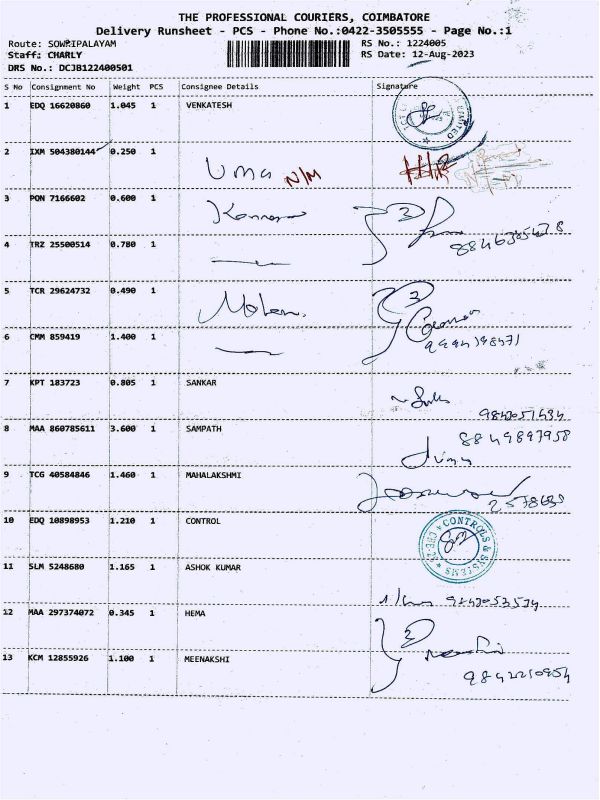 THE PROFESSIONAL COURIERS, COIMBATORE
Delivery Runsheet - PCS - Phone No.:0422-3505555 - Page No.:1
Route: SOWRIPALAYAM RS No.: 1224005
Staff: CHARLY RS Date: 12-Aug-2023
DRS No.: DCJB122400501
S No Consignment No Weight PCS Consignee Details Signature
1 EDQ 16620860 1.045 1 VENKATESH
LIMITED
2 IXM 504380144 0.250 1 Uma N/M
3 PON 7166602 0.600 1
4 TRZ 25500514 0.780 1
5 TCR 29624732 0.490 1 Mohan.
6 CMM 859419 1.400 1
7 KPT 183723 0.805 1 SANKAR
8 MAA 860785611 3.600 1 SAMPATH
8849897958
9 TCG 40584846 1.460 1 MAHALAKSHMI
10 EDQ 10898953 1.210 1 CONTROL
CONTROLS & SYSTEMS
11 SLM 5248680 1.165 1 ASHOK KUMAR
12 MAA 297374072 0.345 1 HEMA
13 KCM 12855926 1.100 1 MEENAKSHI
9842210954